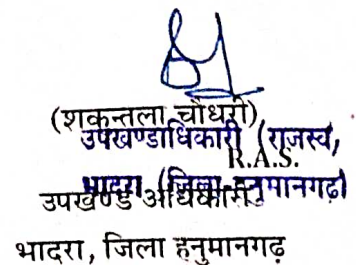 (शकुन्तला चौधरी)
उपखण्डाधिकारी (राजस्व)
R.A.S.
भादरा (जिला-हनुमानगढ़)
उपखण्ड अधिकारी
भादरा, जिला हनुमानगढ़